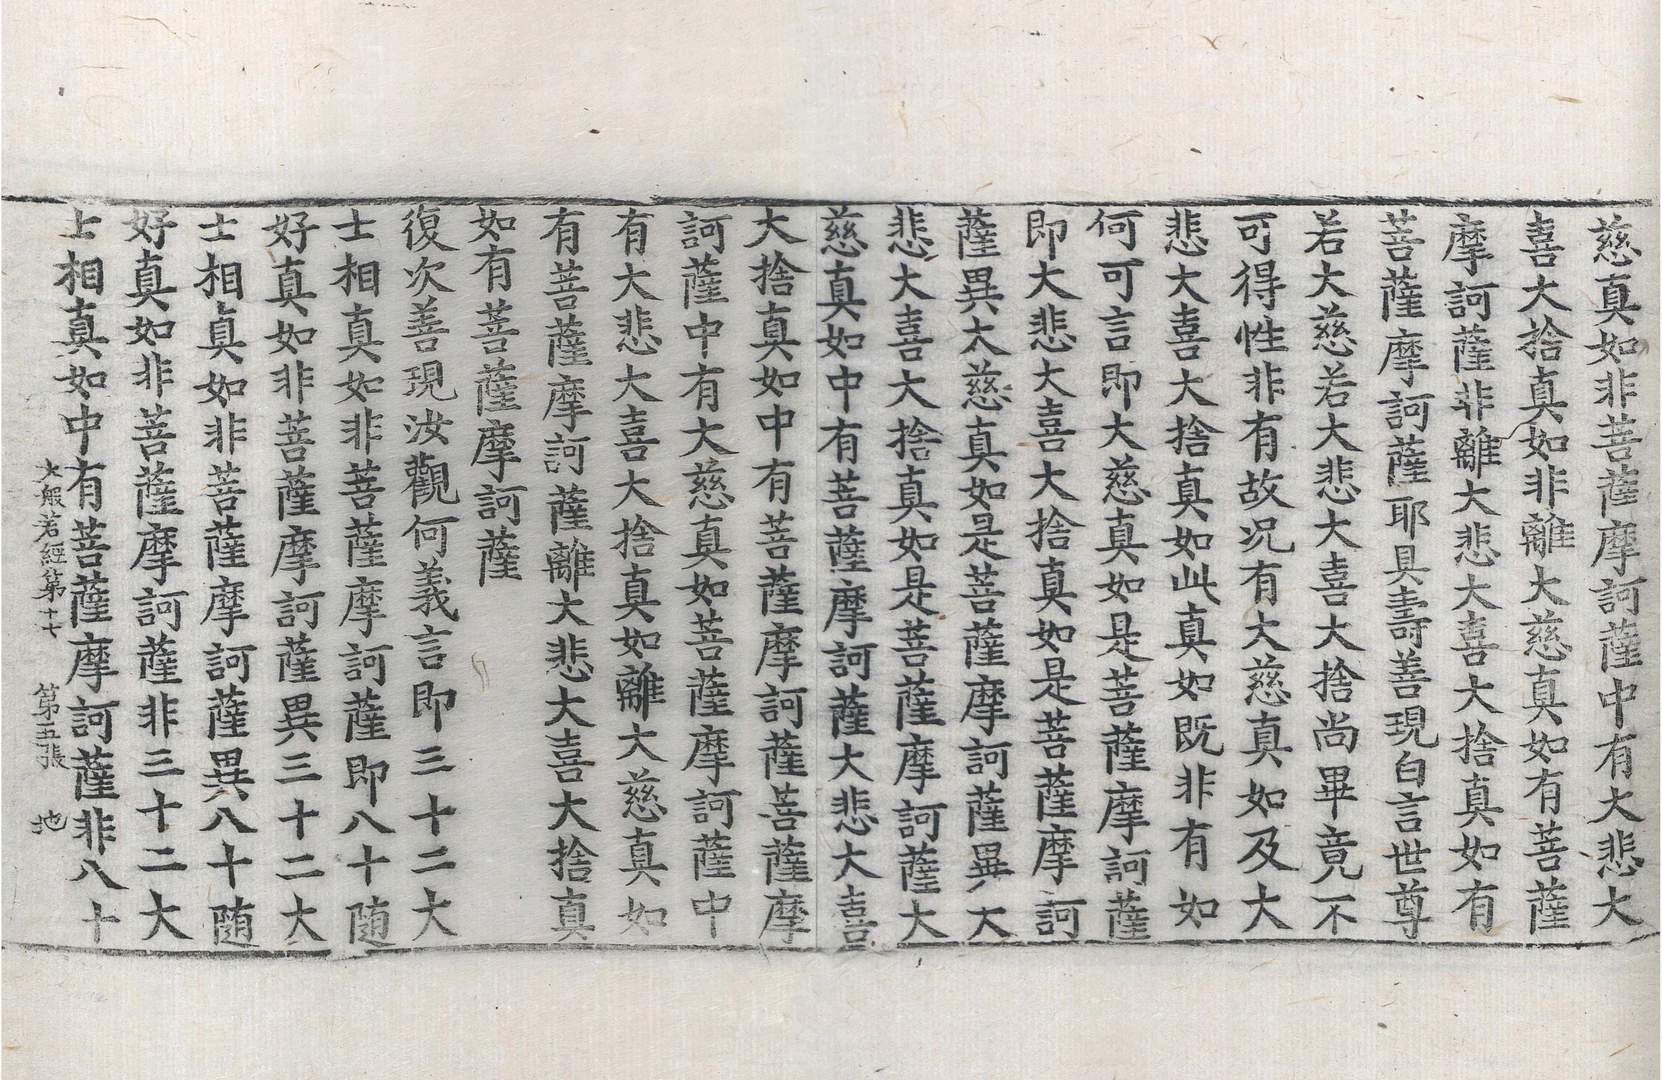 慈真如非菩薩摩訶薩中有大悲大
喜大捨真如非離大慈真如有菩薩
摩訶薩非離大悲大喜大捨真如有
菩薩摩訶薩耶具壽善現白言世尊
若大慈若大悲大喜大捨尚畢竟不
可得性非有故况有大慈真如及大
悲大喜大捨真如此真如既非有如
何可言即大慈真如是菩薩摩訶薩
即大悲大喜大捨真如是菩薩摩訶
薩異大慈真如是菩薩摩訶薩異大
悲大喜大捨真如是菩薩摩訶薩大
慈真如中有菩薩摩訶薩大悲大喜
大捨真如中有菩薩摩訶薩菩薩摩
訶薩中有大慈真如菩薩摩訶薩中
有大悲大喜大捨真如離大慈真如
有菩薩摩訶薩離大悲大喜大捨真
如有菩薩摩訶薩
復次善現汝觀何義言即三十二大
士相真如非菩薩摩訶薩即八十随
好真如非菩薩摩訶薩異三十二大
士相真如非菩薩摩訶薩異八十随
好真如非菩薩摩訶薩非三十二大
士相真如中有菩薩摩訶薩非八十
大般若經第十七 第五張 地